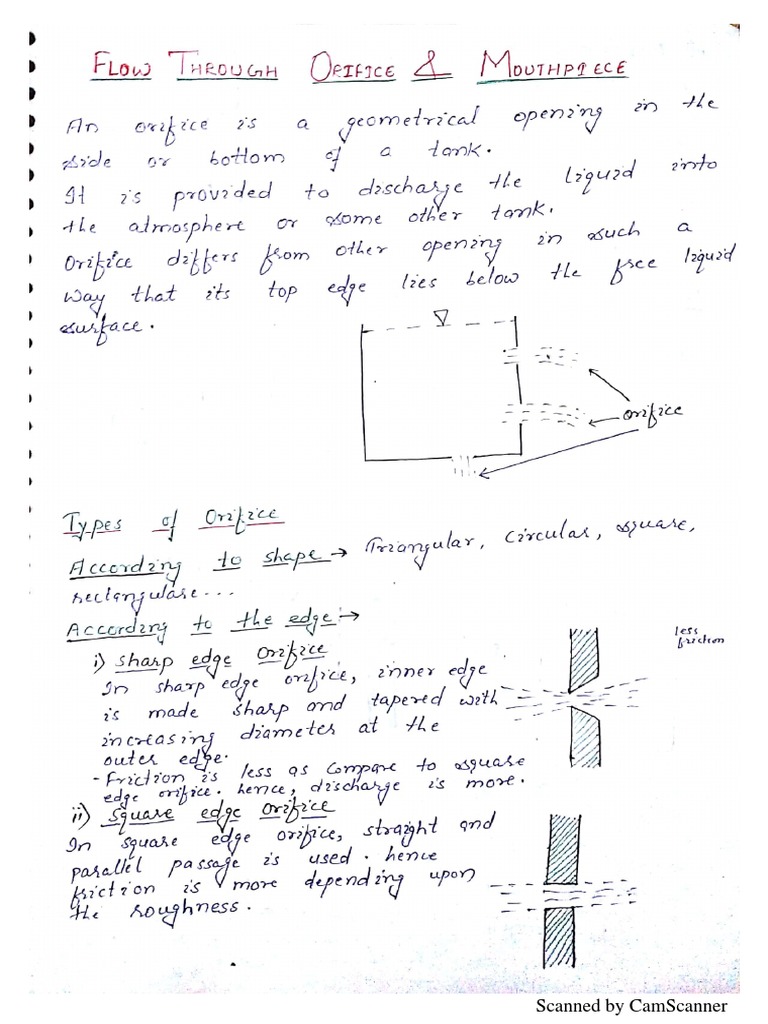 FLOW THROUGH ORIFICE & MOUTHPIECE
An orifice is a geometrical opening in the
side or bottom of a tank.
It is provided to discharge the liquid into
the atmosphere or some other tank.
Orifice differs from other opening in such a
way that its top edge lies below the free liquid
surface.
orifice
Types of Orifice
According to shape → Triangular, Circular, square,
rectangulare...
According to the edge:→
i) sharp edge orifice
In sharp edge orifice, inner edge
is made sharp and tapered with
increasing diameter at the
outer edge.
- Friction is less as compare to square
edge orifice. hence, discharge is more.
less
friction
ii) square edge orifice
In square edge orifice, straight and
parallel passage is used. hence
friction is more depending upon
the roughness.
Scanned by CamScanner